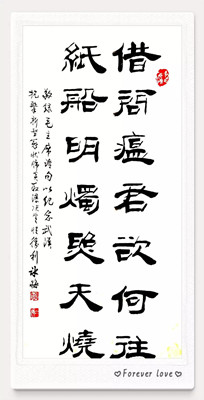 借問瘟君欲何往
紙船明燭照天燒
敬録毛主席詩句以紀念武漢
抗擊新型冠狀
勝利
♡Forever love♡